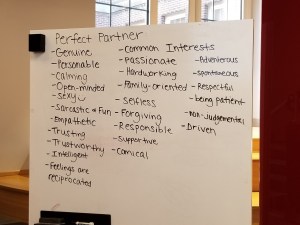 Perfect Partner
-Genuine
-Personable
-Calming
-Open-minded
-Sexy
-Sarcastic + Fun
-Empathetic
-Trusting
-Trustworthy
-Intelligent
-Feelings are
reciprocated
-Common Interests
-Passionate
-Hardworking
-Family-oriented
-Selfless
-Forgiving
-Responsible
-Supportive
-Comical
-Adventerous
-Spontaneous
-Respectful
-being patient
-Non-judgemental
-Driven